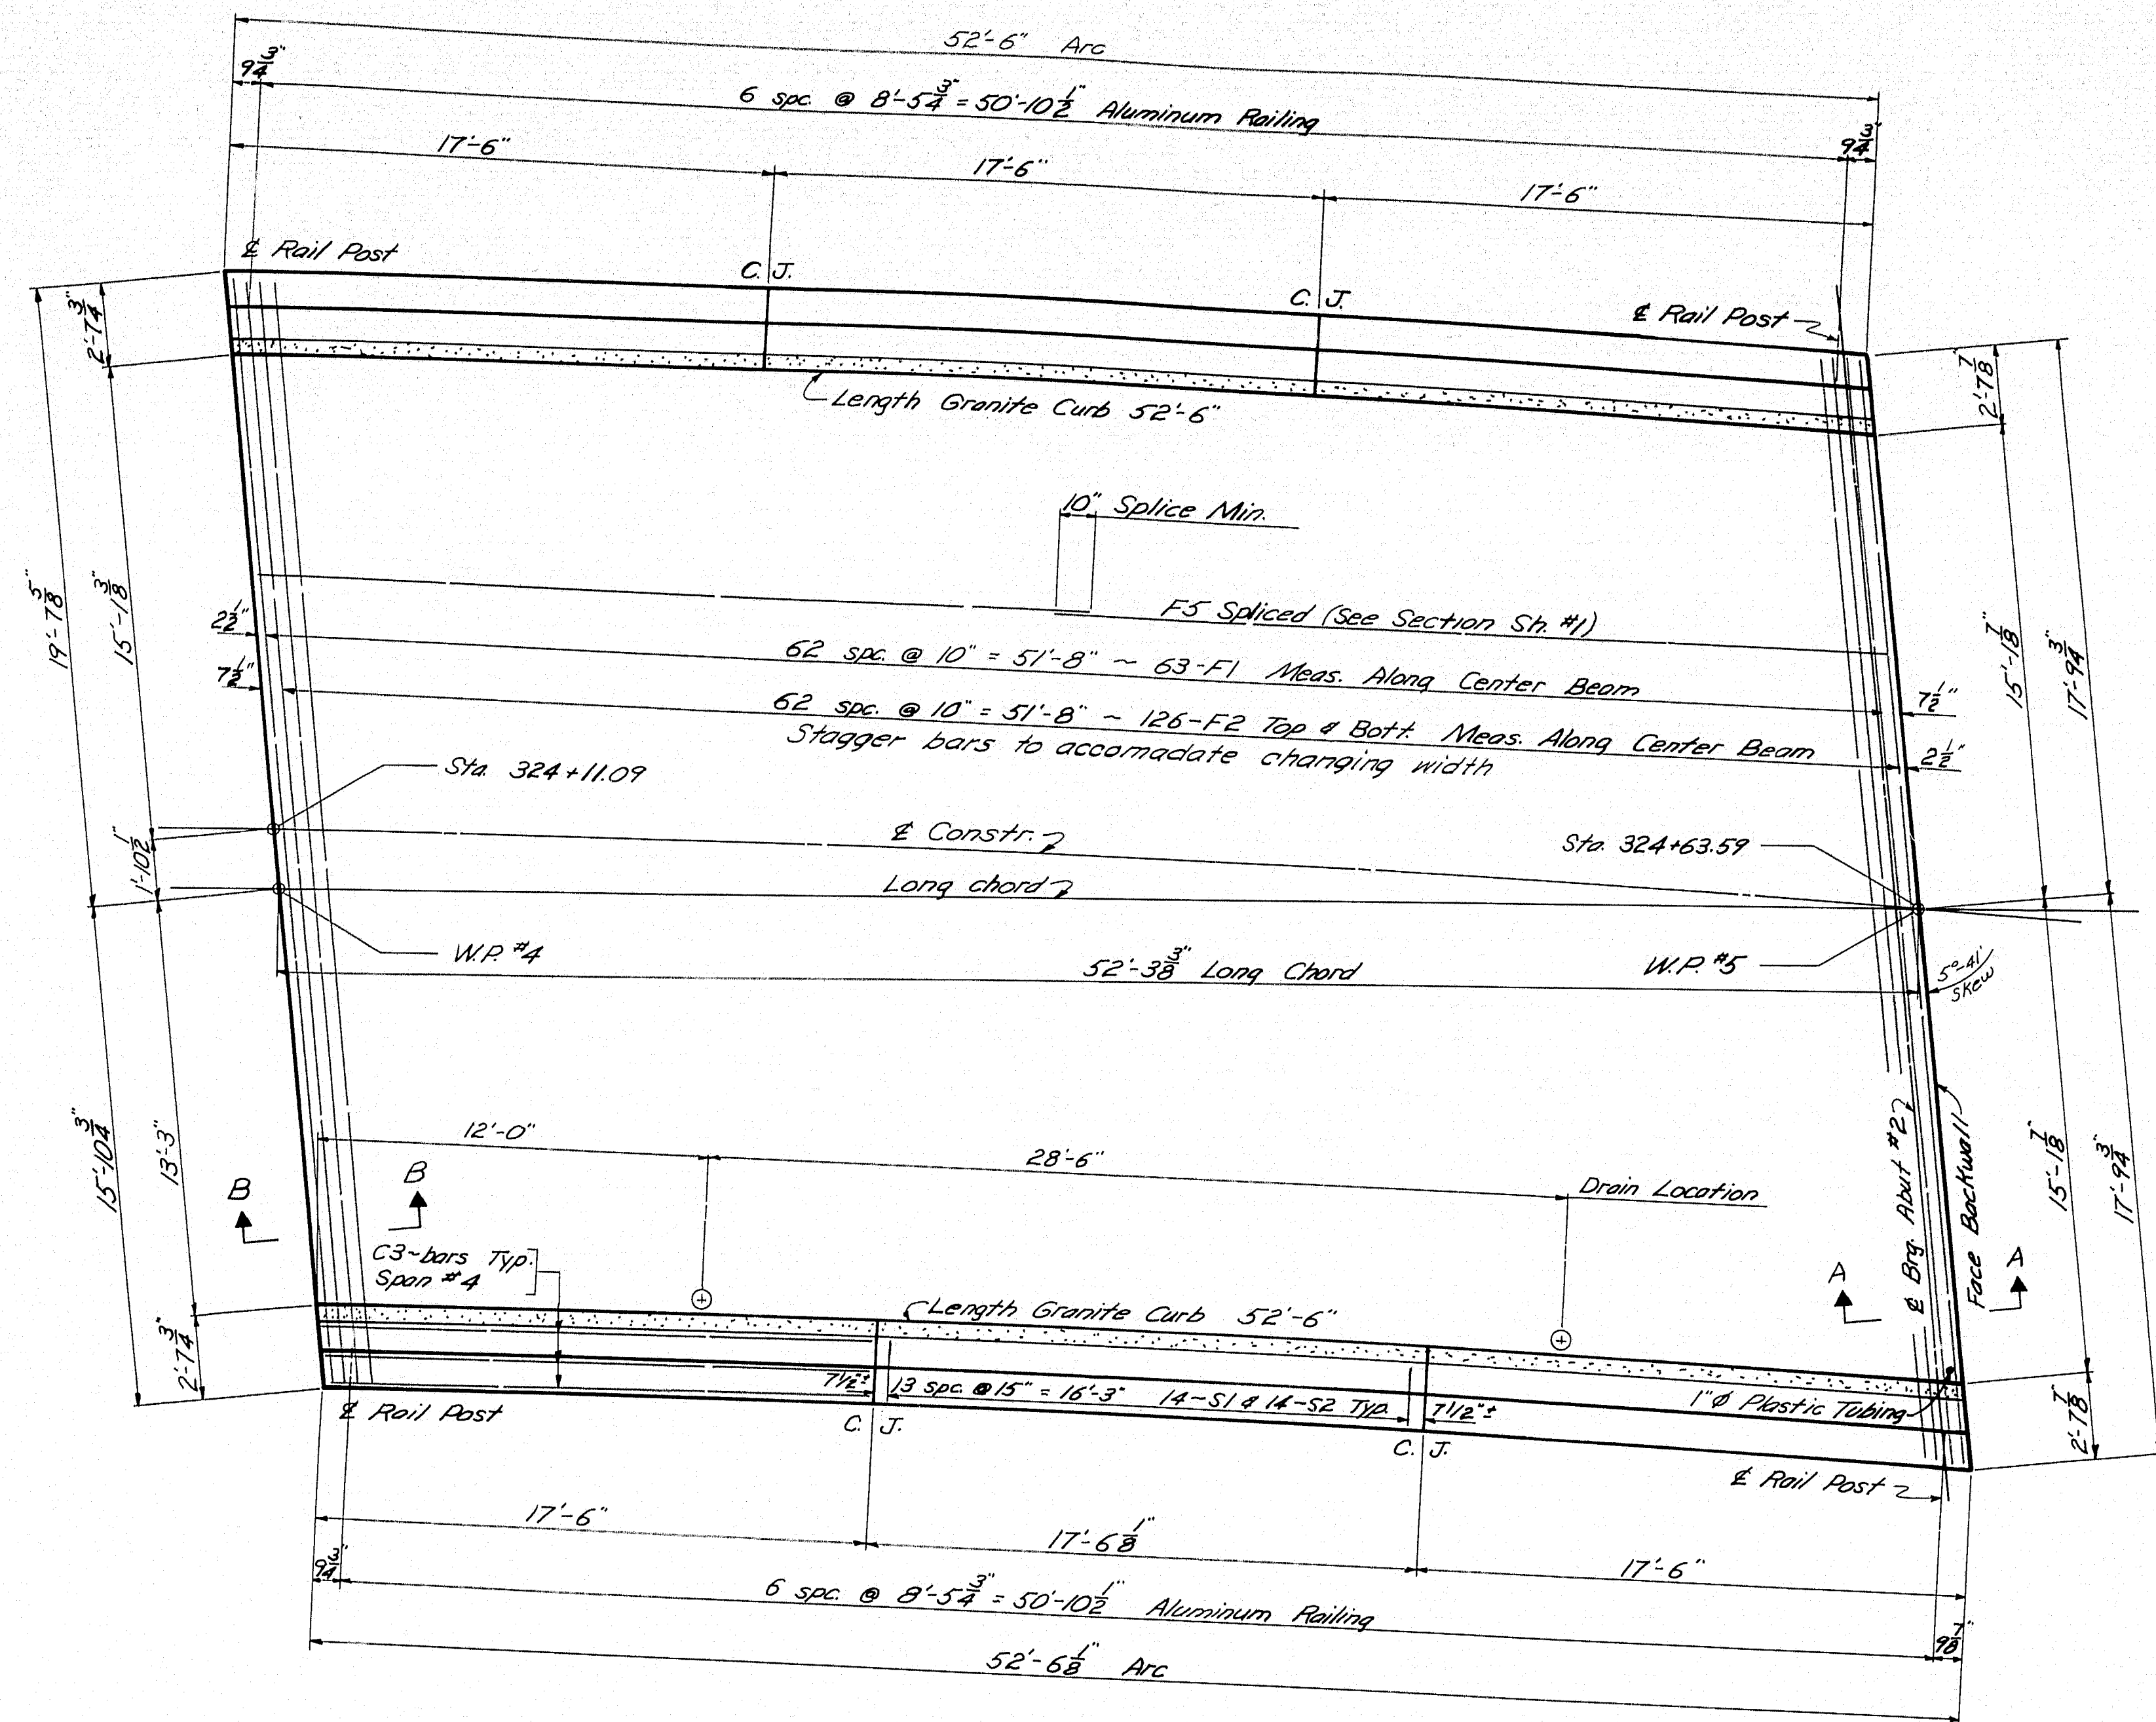 52'-6" Arc
9 3/4"
6 spc. @ 8'-5 3/4" = 50'-10 1/2" Aluminum Railing
9 3/4"
17'-6"
17'-6"
17'-6"
℄ Rail Post
C. J.
C. J.
℄ Rail Post
2'-7 3/4"
2'-7 7/8"
Length Granite Curb 52'-6"
10" Splice Min.
19'-7 5/8"
15'-1 3/8"
15'-1 7/8"
17'-9 3/4"
F5 Spliced (See Section Sh. #1)
2 1/2"
62 spc. @ 10" = 51'-8" ~ 63-F1 Meas. Along Center Beam
7 1/2"
7 1/2"
62 spc. @ 10" = 51'-8" ~ 126-F2 Top & Bott. Meas. Along Center Beam
Stagger bars to accomadate changing width
2 1/2"
Sta. 324+11.09
℄ Constr.
Sta. 324+63.59
1'-10 1/2"
Long chord
W.P. #4
52'-3 3/8" Long Chord
W.P. #5
5°-41'
Skew
15'-10 3/4"
13'-3"
12'-0"
28'-6"
Drain Location
℄ Brg. Abut #2
Face Backwall
15'-1 7/8"
17'-9 3/4"
B
B
A
A
C3~bars Typ.
Span #4
Length Granite Curb 52'-6"
2'-7 3/4"
7 1/2"±
13 spc. @ 15" = 16'-3" 14~S1 & 14~S2 Typ.
7 1/2"±
1"Ø Plastic Tubing
2'-7 7/8"
℄ Rail Post
C. J.
C. J.
℄ Rail Post
17'-6"
17'-6 1/8"
17'-6"
9 3/4"
6 spc. @ 8'-5 3/4" = 50'-10 1/2" Aluminum Railing
9 7/8"
52'-6 1/8" Arc